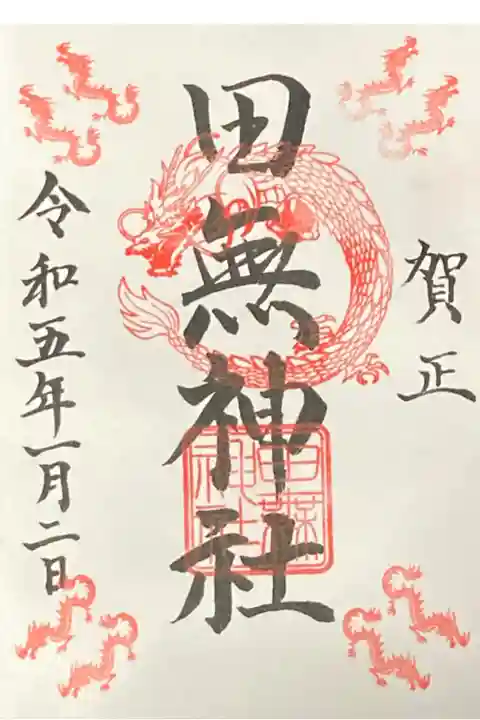 賀正
田無神社
令和五年一月二日
田無神社